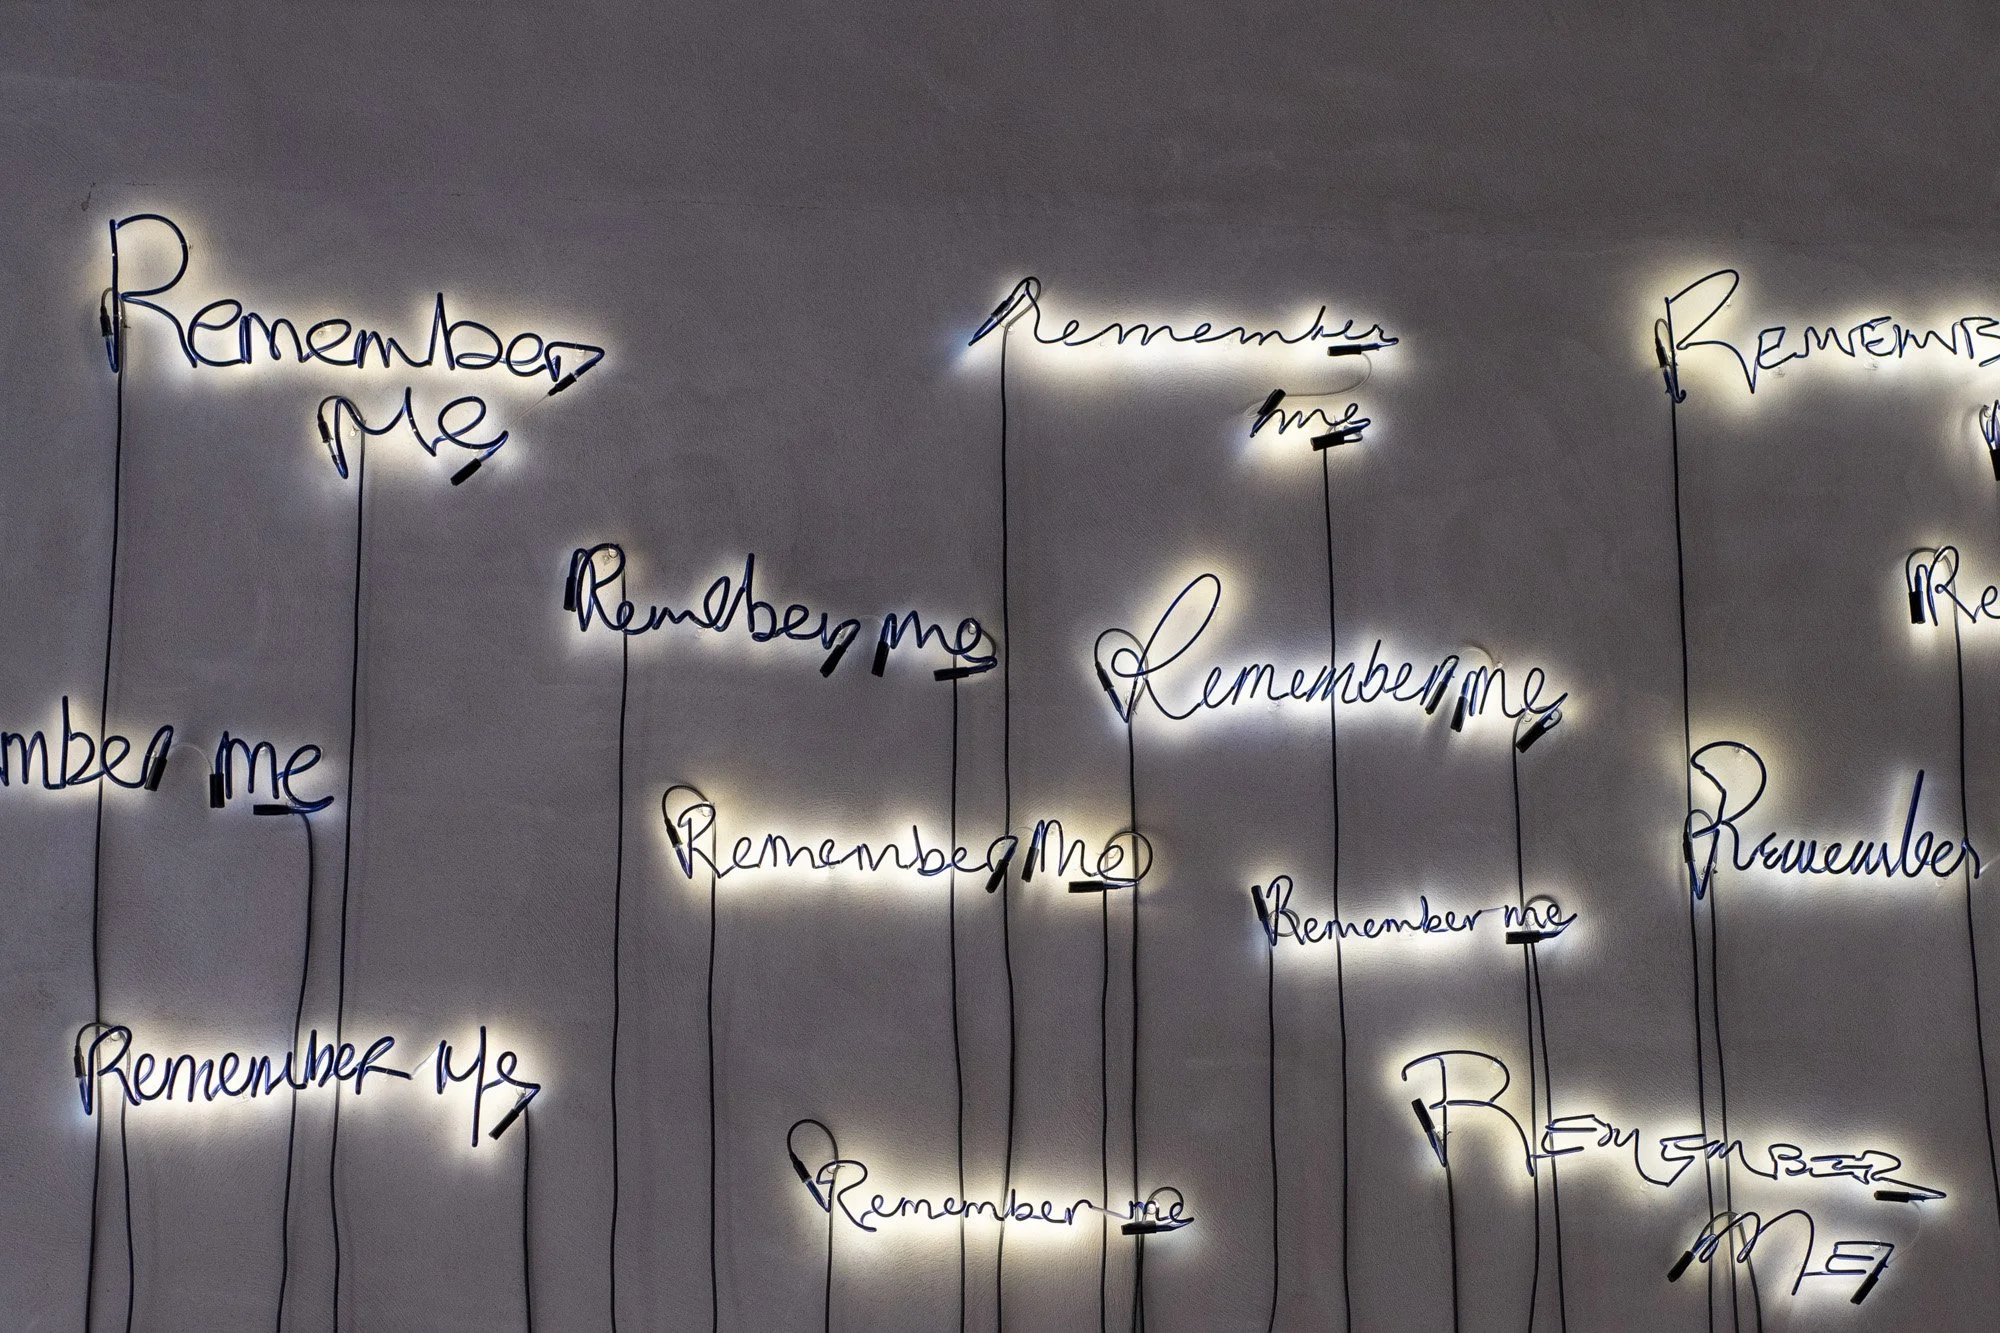 Remember
Me
Remember
me
REMEMB
Remember me
Remember me
Re
mber me
Remember Me
Remember
Remember me
Remember Me
REMEMBER
ME
Remember me